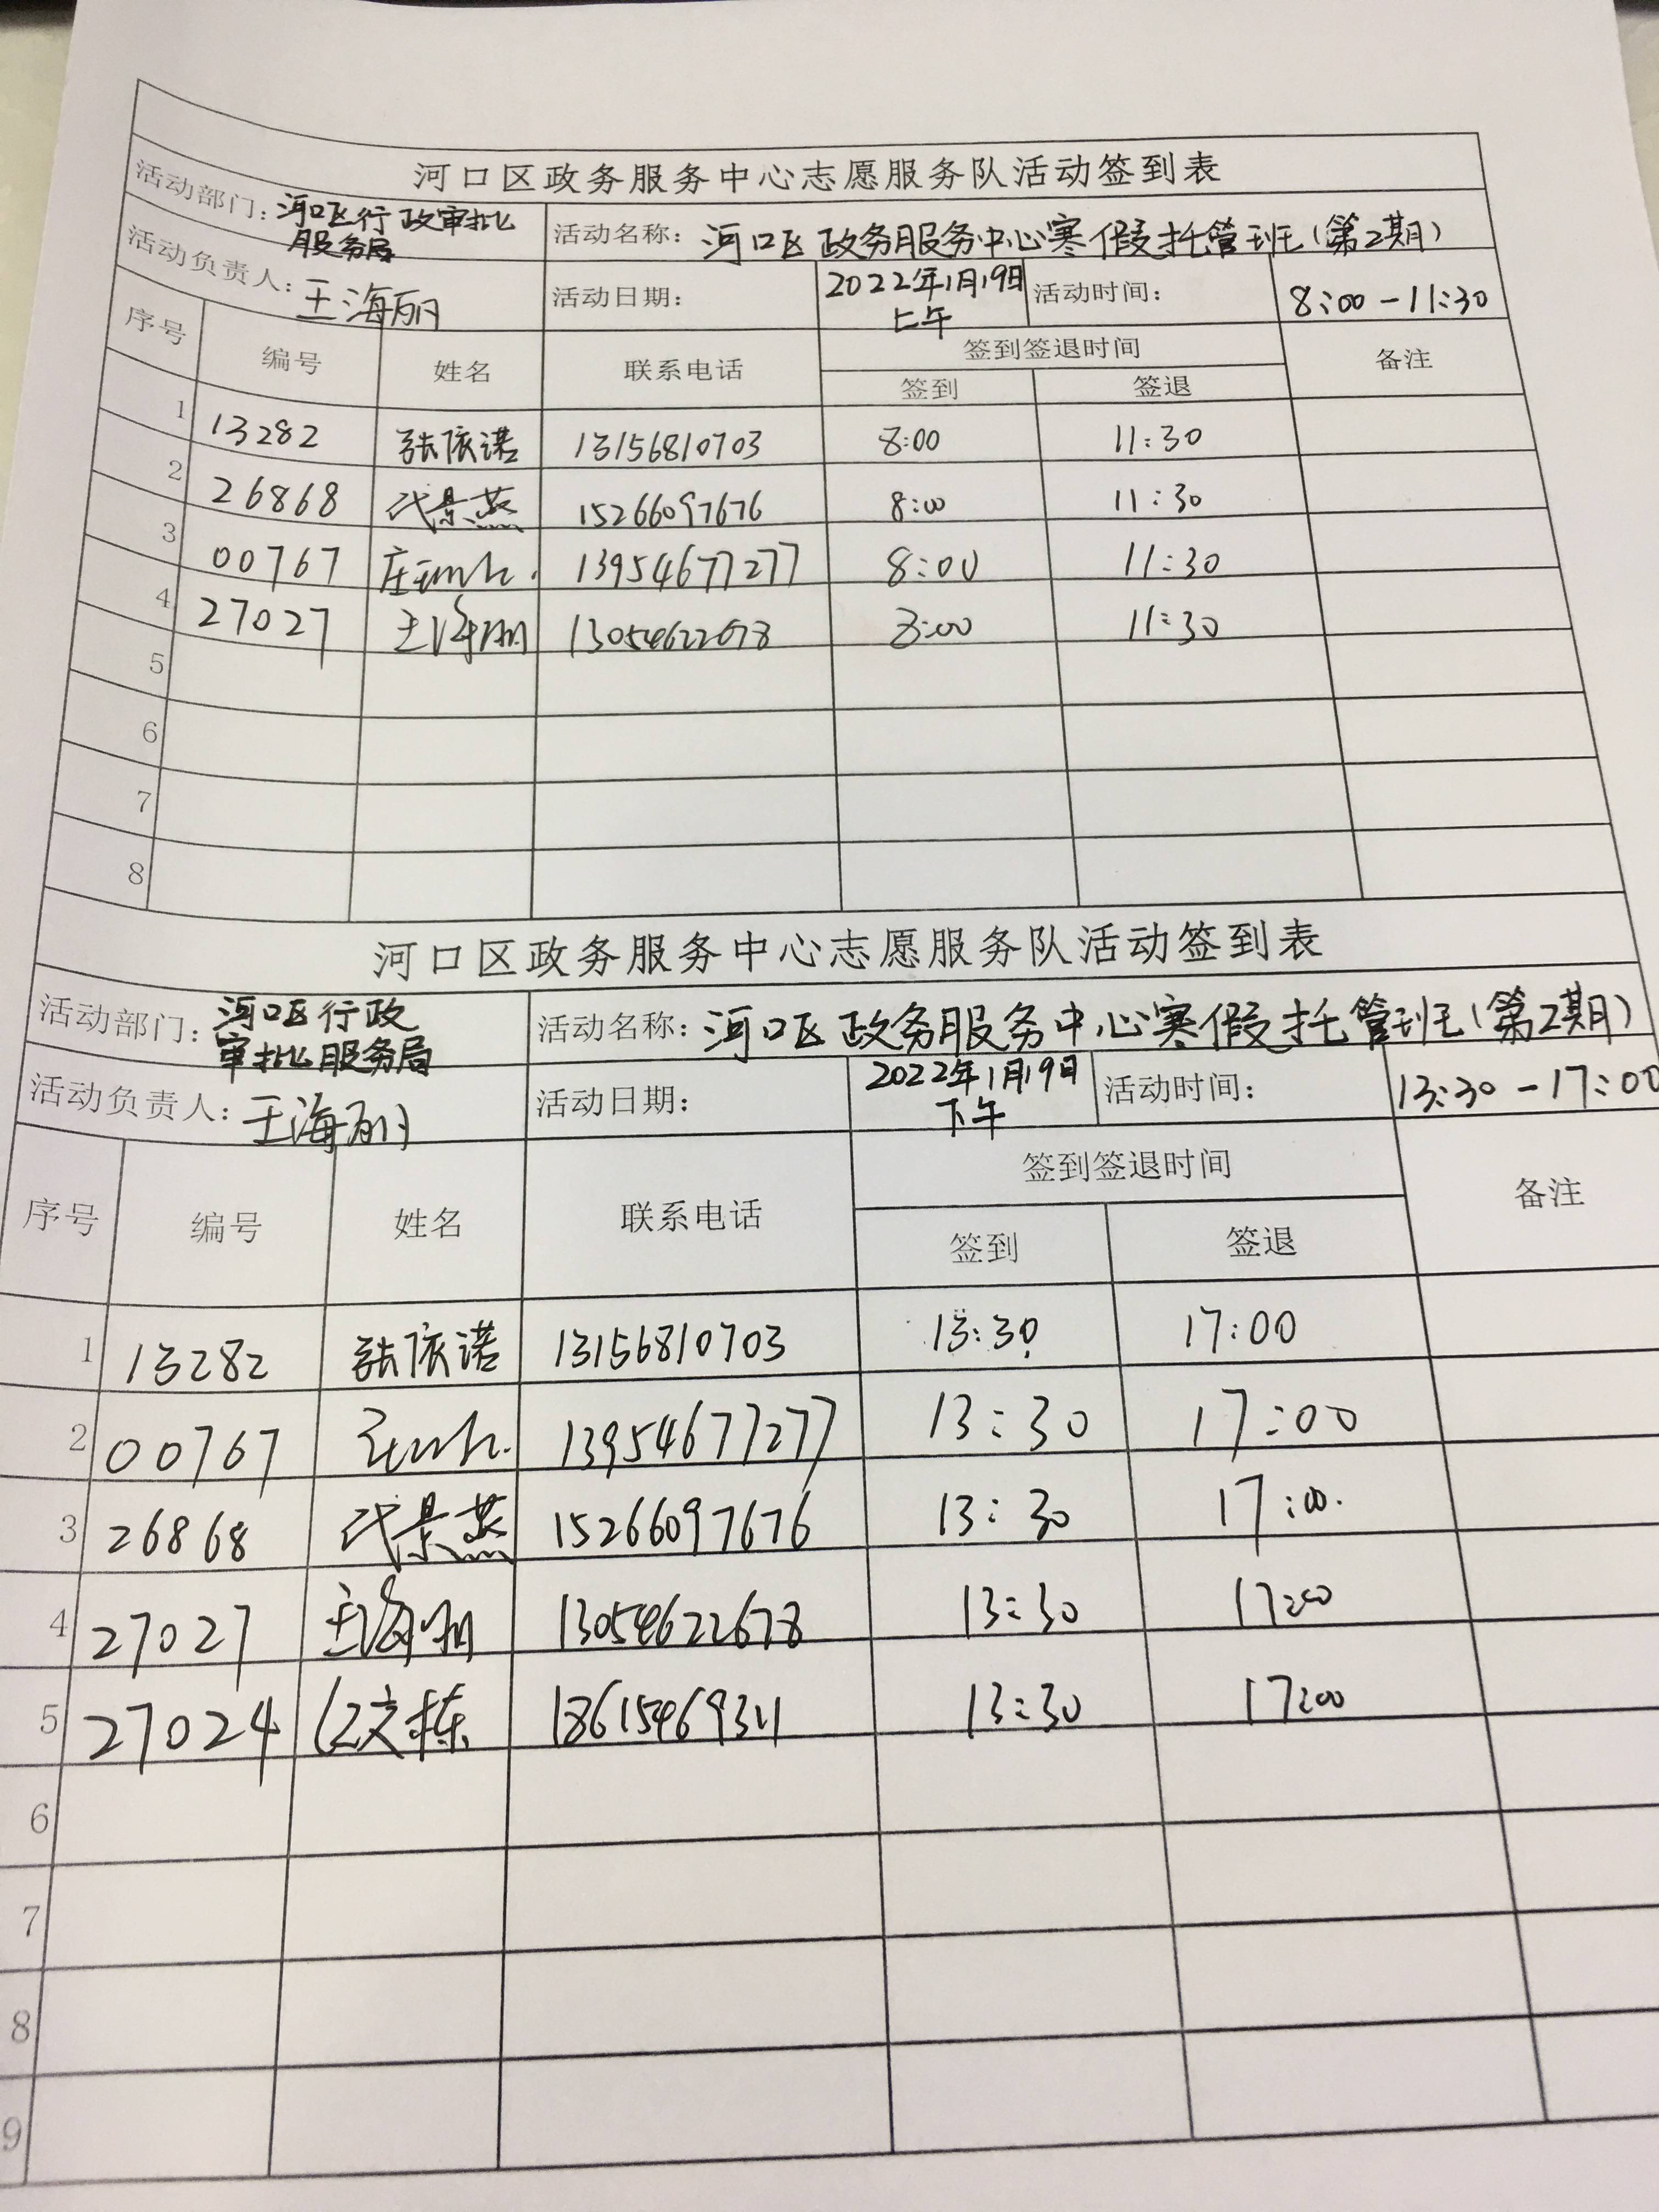 河口区政务服务中心志愿服务队活动签到表
活动部门：河口区行政审批服务局 活动名称：河口区政务服务中心寒假托管班（第2期）
活动负责人：王海丽 活动日期：2022年1月19日上午 活动时间：8:00-11:30
序号 编号 姓名 联系电话 签到签退时间 备注
签到 签退
1 13282 张依诺 13156810703 8:00 11:30
2 26868 代景燕 15266097676 8:00 11:30
3 00767 13954677277 8:00 11:30
4 27027 王海丽 13054622678 8:00 11:30
5
6
7
8
河口区政务服务中心志愿服务队活动签到表
活动部门：河口区行政审批服务局 活动名称：河口区政务服务中心寒假托管班（第2期）
活动负责人：王海丽 活动日期：2022年1月19日下午 活动时间：13:30-17:00
序号 编号 姓名 联系电话 签到签退时间 备注
签到 签退
1 13282 张依诺 13156810703 13:30 17:00
2 00767 13954677277 13:30 17:00
3 26868 代景燕 15266097676 13:30 17:00
4 27027 王海丽 13054622678 13:30 17:00
5 27024 13:30 17:00
6
7
8
9